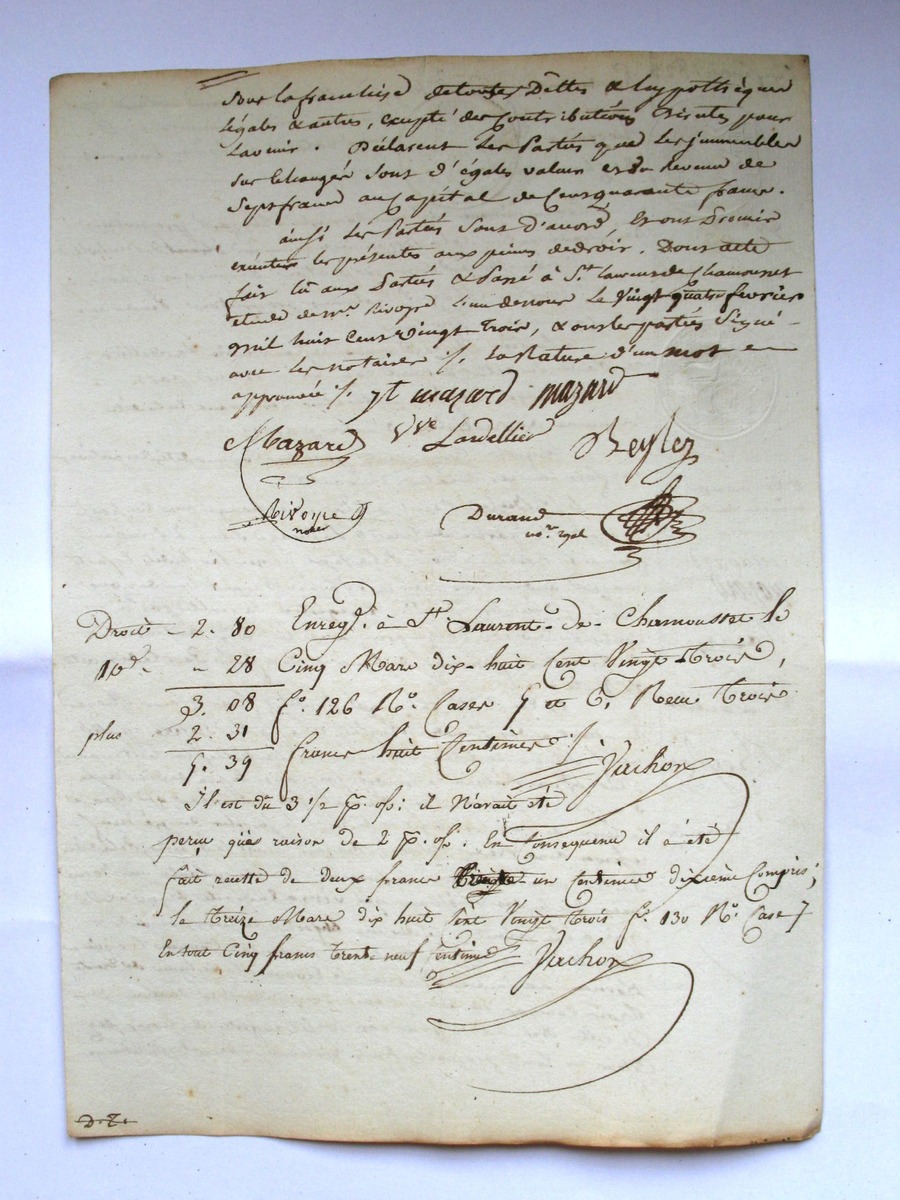 sous la franchise de toutes Dêttes & hypothèques
légales & autres, excepté des Contributions Directes pour
L'avenir. Déclarent Les Parties que Les jmmeubles
sur Echangés sont d'égales valeurs et du Revenu de
Sept francs au Capital de Cent quarante francs.
ainsi Les Parties Sont d'accord, Et ont Promis
exécuter les présentes aux peines de droit. Dont acte
fait lû aux Parties & Passé à St. Laurent de Chamousset
étude de me. Rivoyre l'un de nous Le Vingt quatre fevrier
Mil huit Cent Vingt Trois, & ont les parties Signé
avec les notaires ./. La Rature d'un mot
approuvée ./. mazard mazard
Mazard Vve Lardellier Reylez
Rivoyre nore Durand nore. royal
Droits - 2. 80 Enregt. à St. Laurent - de - Chamousset le
10e. - " 28 Cinq Mars dix-huit Cent Vingt Trois,
3. 08 fo. 126 Ro. Cases 5 et 6. Reçu Trois
plus 2. 31 francs huit Centimes ./. Vachon
5. 39
Il est dû 3 1/2 p. o/o: il N'avait été
perçu qu'à raison de 2 p. o/o. En Consequence il à été
fait recette de deux francs Trente un Centimes dixième Compris;
le Treize Mars dix huit Cent Vingt Trois fo. 130 Ro. Case 7
En tout Cinq francs Trente neuf Centimes Vachon
D. T.